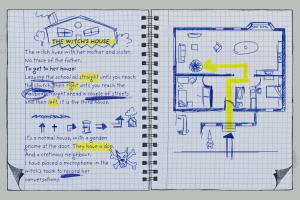 THE WITCH'S HOUSE
The witch lives with her mother and sister.
No trace of the father.
To get to her house:
Leaving the school go straight until you reach
the church, then right until you reach the
straight ahead a couple of streets
and then left, it is the third house.
It's a normal house, with a garden
gnome at the door. They have a dog.
And a cretinous neighbour.
I have placed a microphone in the
witch's room to record her
conversations.